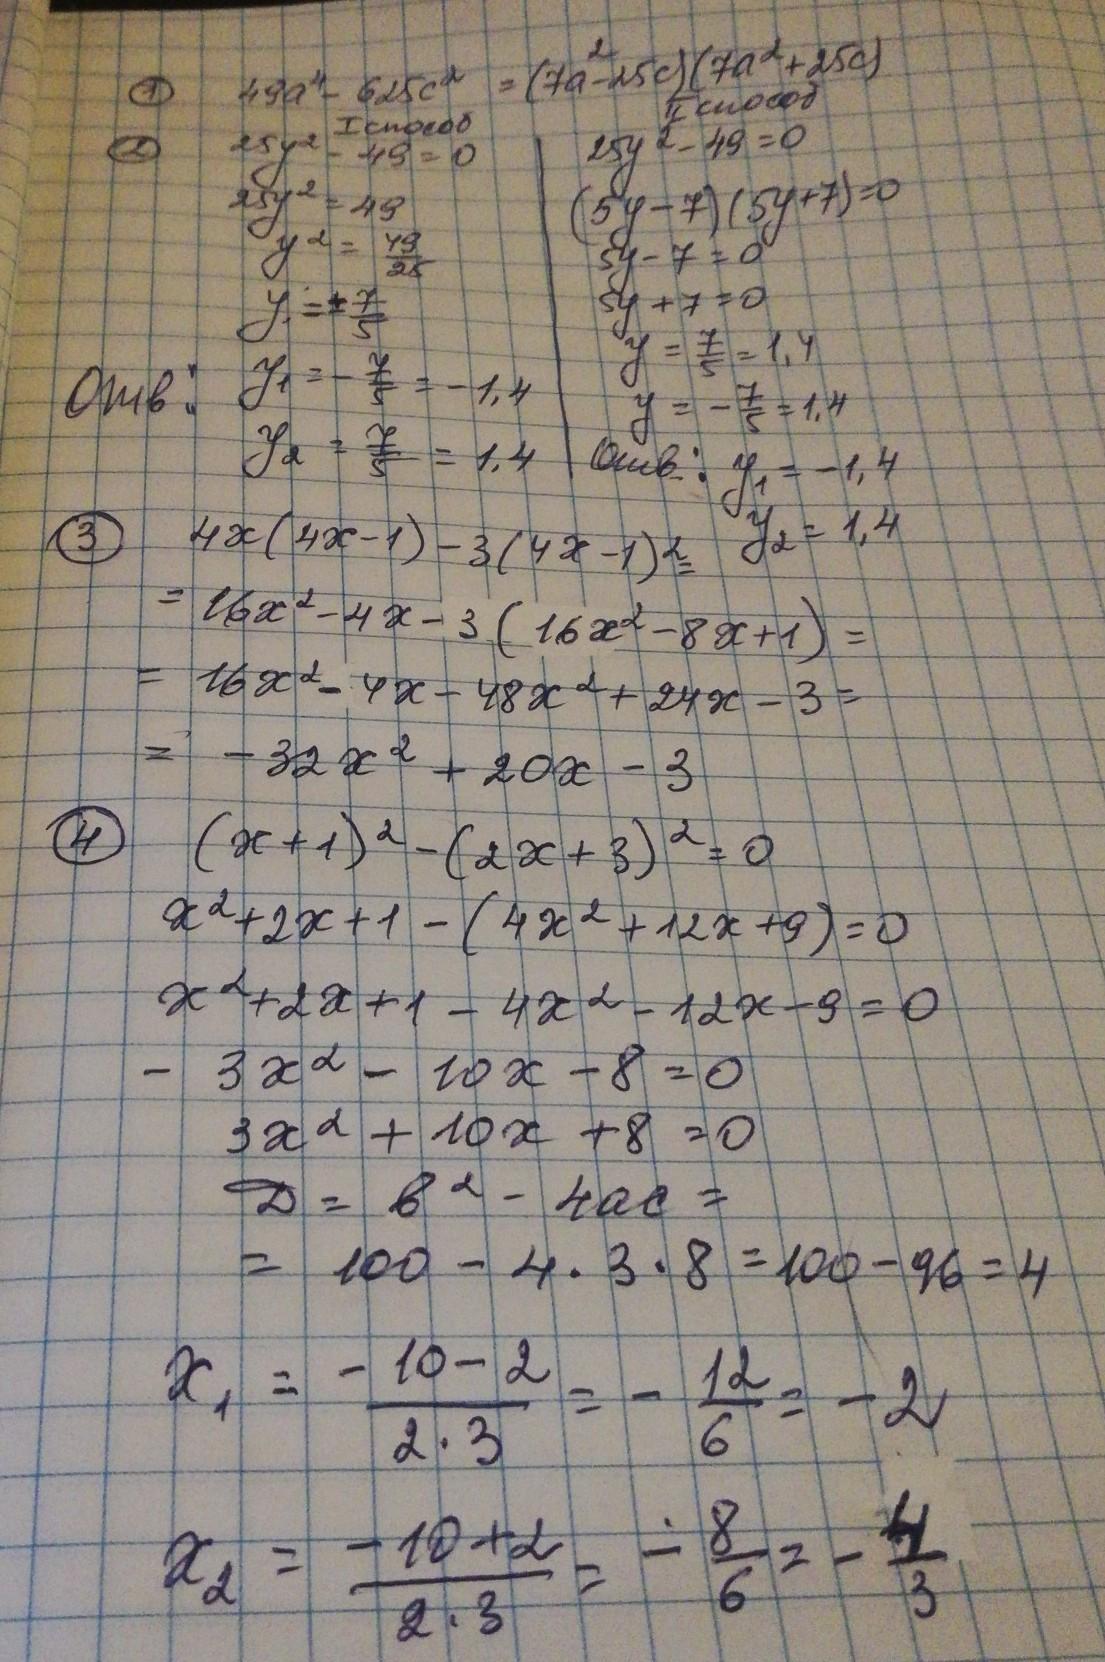 ① 49a⁴ - 625c² = (7a² - 25c)(7a² + 25c)
② I способ
25y² - 49 = 0
25y² = 49
y² = 49/25
y = ± 7/5
Отв: y₁ = - 7/5 = - 1,4
y₂ = 7/5 = 1,4
II способ
25y² - 49 = 0
(5y - 7)(5y + 7) = 0
5y - 7 = 0
5y + 7 = 0
y = 7/5 = 1,4
y = - 7/5 = 1,4
Отв: y₁ = - 1,4
y₂ = 1,4
③ 4x(4x - 1) - 3(4x - 1)² =
= 16x² - 4x - 3(16x² - 8x + 1) =
= 16x² - 4x - 48x² + 24x - 3 =
= - 32x² + 20x - 3
④ (x + 1)² - (2x + 3)² = 0
x² + 2x + 1 - (4x² + 12x + 9) = 0
x² + 2x + 1 - 4x² - 12x - 9 = 0
- 3x² - 10x - 8 = 0
3x² + 10x + 8 = 0
D = b² - 4ac =
= 100 - 4 · 3 · 8 = 100 - 96 = 4
x₁ = (-10 - 2)/(2 · 3) = - 12/6 = - 2
x₂ = (-10 + 2)/(2 · 3) = - 8/6 = - 4/3